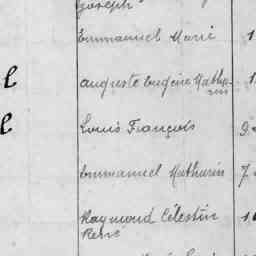 Joseph
Emmanuel Marie 1
Auguste Eugène Mathu-
rin 1
Louis François 9
Emmanuel Mathurin 7
Raymond Célestin 1
René